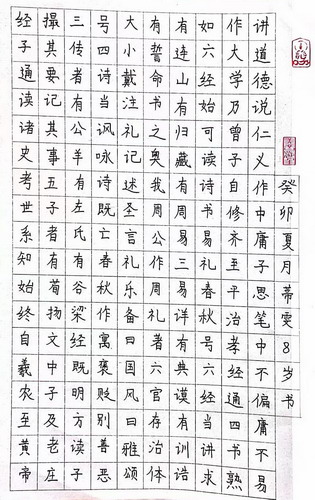 讲道德说仁义作中庸子思笔中不偏庸不易
作大学乃曾子自修齐至平治孝经通四书熟
如六经始可读诗书易礼春秋号六经当讲求
有连山有归藏有周易三易详有典谟有训诰
有誓命书之奥我周公作周礼著六官存治体
大小戴注礼记述圣言礼乐备曰国风曰雅颂
号四诗当讽咏诗既亡春秋作寓褒贬别善恶
三传者有公羊有左氏有谷梁经既明方读子
撮其要记其事五子者有荀扬文中子及老庄
经子通读诸史考世系知始终自羲农至黄帝
癸卯夏月蒂雯8岁书